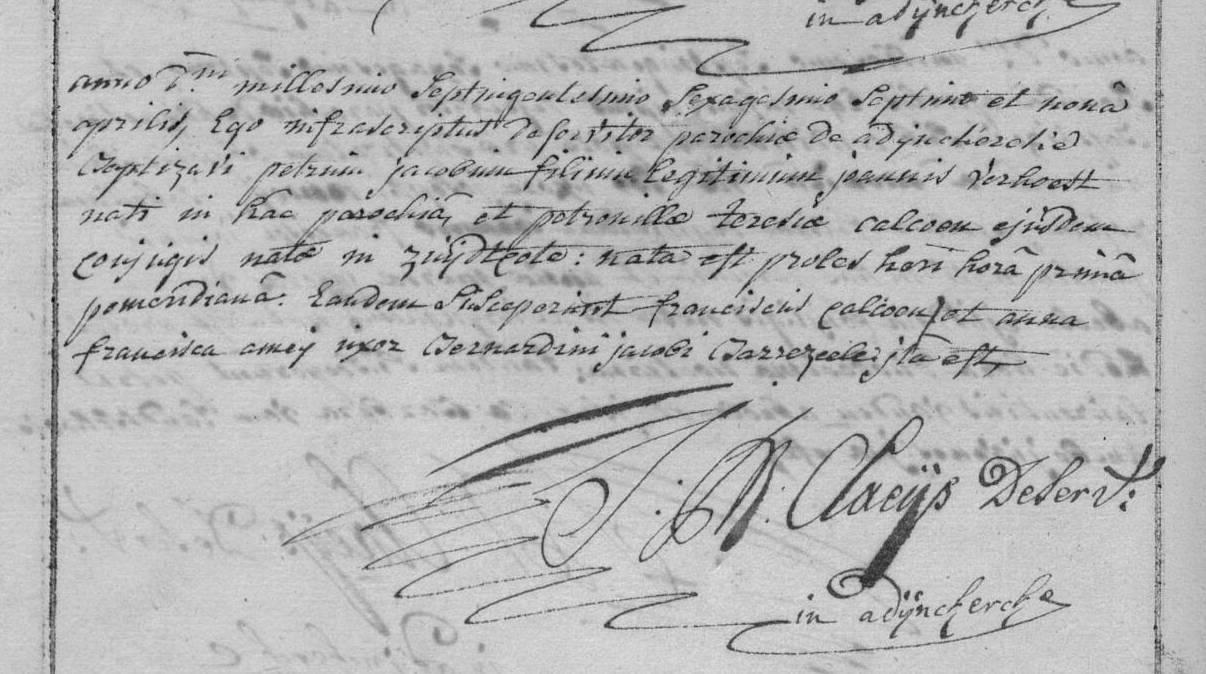 in adÿncherche
anno d^m millesimo Septingentesimo Sexagesimo Septimo et nonâ
aprilis, Ego infrascriptus deservitor parochiæ de adÿncherche
Baptizavi petrum jacobum filium legitimum joannis verhoest
nati in hac parochiâ, et petronillæ teresiæ calcoen ejusdem
conjugis natæ in zuÿdtcote: nata est proles heri horâ primâ
pomeridianâ. Eandem Susceperunt franciscus calcoen et anna
francisca ameÿ uxor Bernardini jacobi Barrezeele; jta est
J: N: Claeÿs Deserv^t:
in adÿncherche